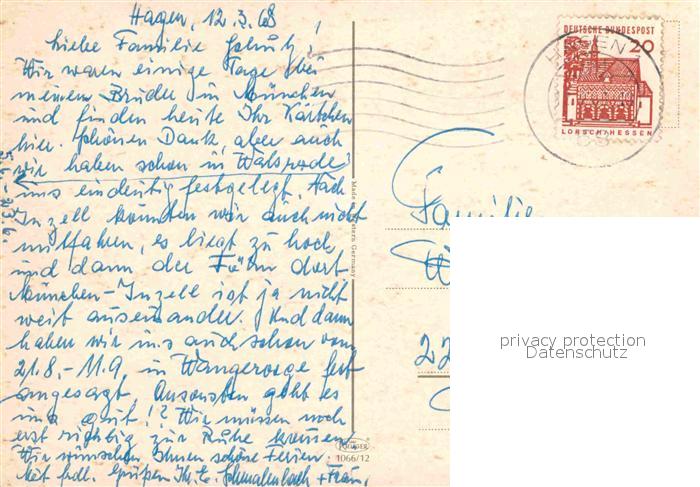 Hagen, 12.3.68
Liebe Familie
Wir waren einige Tage bei
meinem Bruder in München
und finden heute Ihr Kärtchen
hier. Schönen Dank, aber auch
wir haben schon in Walsrode
uns eindeutig festgelegt. Nach
Inzell könnten wir auch nicht
mitfahren, es liegt zu hoch
und dann der Föhn dort
München-Inzell ist ja nicht
weit auseinander. Und dann
haben wir uns auch schon vom
21.8.-11.9. in Wangerooge fest
angesagt. Ansonsten geht es
uns gut!? Wir müssen noch
erst richtig zur Ruhe kommen!
Wir wünschen Ihnen schöne Ferien.
Mit frdl. Grüßen Ihr E. Schmalenbach + Frau.
DEUTSCHE BUNDESPOST
20
LORSCH/HESSEN
HAGEN
Familie
W
22
Made in Western Germany
KRÜGER
1066/12
privacy protection
Datenschutz